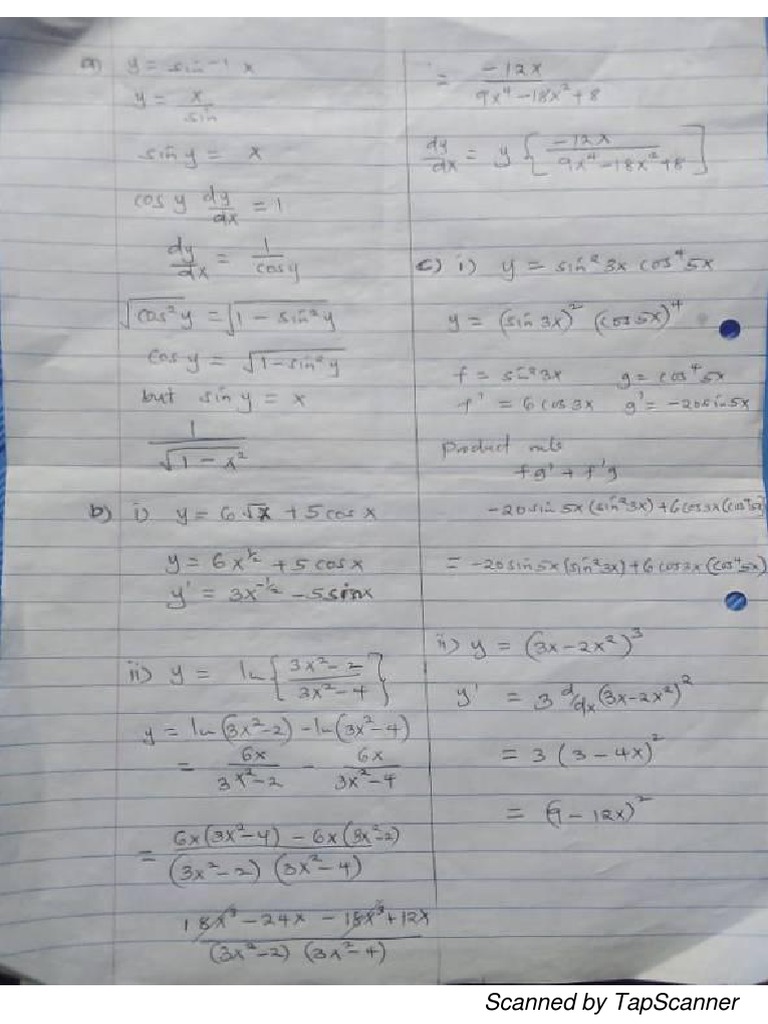 a) y = sin⁻¹ x
y = x/sin
sin y = x
cos y dy/dx = 1
dy/dx = 1/cos y
√cos² y = √1 - sin² y
cos y = √1 - sin² y
but sin y = x
1/√1 - x²
b) i) y = 6√x + 5 cos x
y = 6x^½ + 5 cos x
y' = 3x^-½ - 5 sin x
ii) y = ln{3x² - 2/3x² - 4}
y = ln(3x² - 2) - ln(3x² - 4)
= 6x/3x² - 2 - 6x/3x² - 4
= 6x(3x² - 4) - 6x(3x² - 2)/(3x² - 2) (3x² - 4)
18x³ - 24x - 18x³ + 12x/(3x² - 2) (3x² - 4)
= -12x/9x⁴ - 18x² + 8
dy/dx = y [-12x/9x⁴ - 18x² + 8]
c) i) y = sin² 3x cos⁴ 5x
y = (sin 3x)² (cos 5x)⁴
f = sin² 3x g = cos⁴ 5x
f' = 6 cos 3x g' = -20 sin 5x
product rule
fg' + f'g
-20 sin 5x (sin² 3x) + 6 cos 3x (cos⁴ 5x)
= -20 sin 5x (sin² 3x) + 6 cos 3x (cos⁴ 5x)
ii) y = (3x - 2x²)³
y' = 3 d/dx (3x - 2x²)²
= 3 (3 - 4x)²
= (9 - 12x)²
Scanned by TapScanner